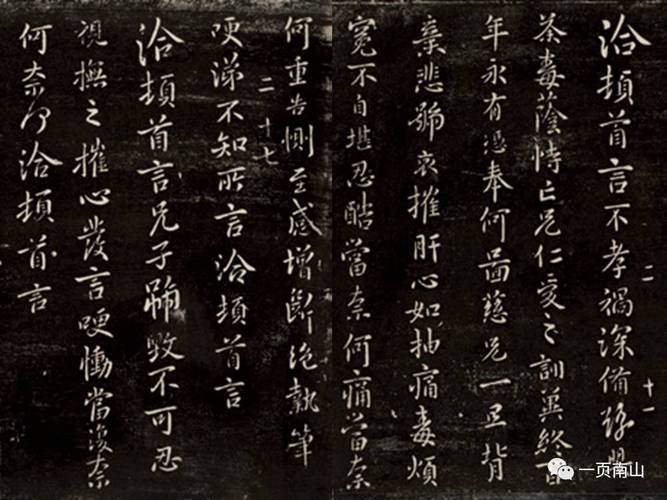 洽頓首言不孝禍深備豫嬰
二 十一
荼毒蔭恃亡兄仁愛之訓冀終百
年永有憑奉何圖慈兄一旦背
棄悲號哀摧肝心如抽痛毒煩
冤不自堪忍酷當奈何痛當奈
何重告惻至感增斷絕執筆
二 十七
哽涕不知所言洽頓首言
洽頓首言兄子號毀不可忍
視撫之摧心發言哽慟當復奈
何奈何洽頓首言
一页南山